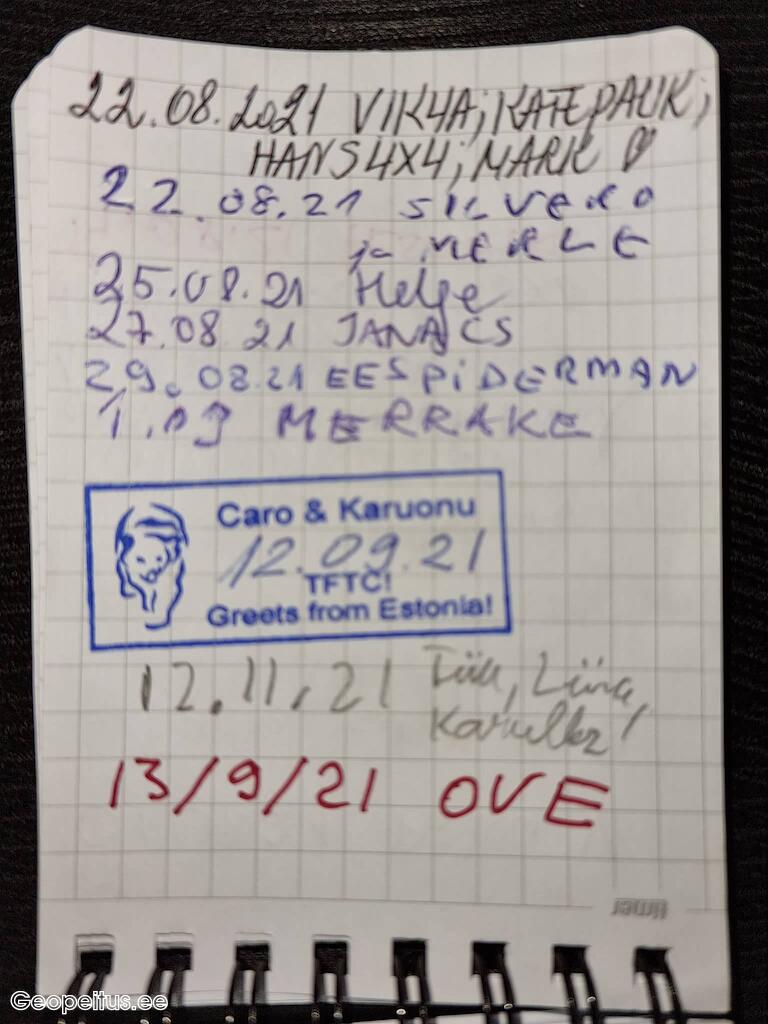 22.08.2021 VIK4A; KATEPAUK;
HANS4X4; MARK
22.08.21 SILVERO
ja MERLE
25.08.21 Helge
27.08.21 JANAJCS
29.08.21 EESPiDERMAN
1.09 MERRAKE
Caro & Karuonu
12.09.21
TFTC!
Greets from Estonia!
12.11.21 Liina,
13/9/21 OVE
timer
Geopeitus.ee